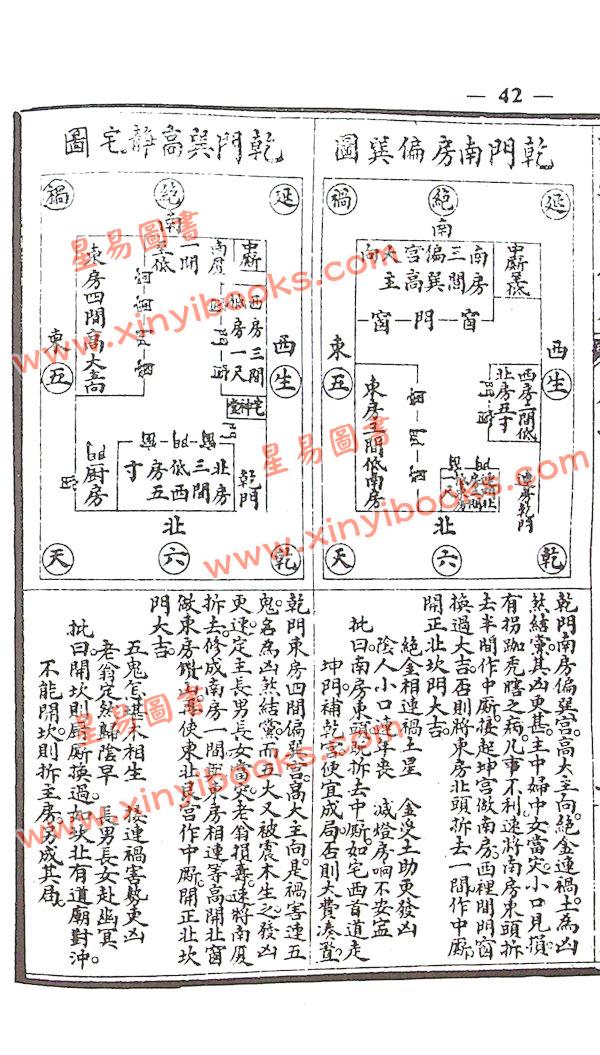 — 42 —
乾門南房偏巽圖
延
絕
禍
南
南房
三間
偏巽
宮高
大主
向
中廁
窗—門—窗
東
西
五
生
西房二間低
北房五寸
東房三間低南房
乾門
北
天
六
乾
乾門南房偏巽宮高大主向絕金連禍土為凶
煞結黨其凶更甚主中婦中女當灾小口見損
有拐跏禿瞎之病凡事不利速將南房東頭拆
去半間作中廁接起坤宮做南房西裡間門窗
換過大吉否則將東房北頭拆去一間作中廁
開正北坎門大吉
絕金相連禍土星 金受土助更發凶
陰人小口連年喪 滅燈房啊不安寍
批曰南房東頭既拆去中廁如宅西首道走
坤門補乾宮便宜成局否則大費湊置
乾門巽高靜宅圖
延
絕
禍
南
南房
一間
低
中廁
西房三間
低房一尺
宅神堂
東房四間高大
東
西
五
生
廚房
北房
三間
低西
房五
寸
乾門
北
天
六
乾
乾門東房四間偏巽宮高大主向是禍害連五
鬼名為凶煞結黨而五火又被震木生之發凶
更速定主長男長女當灾老翁損壽速將南厦
拆去修成南房一間與東房相連等高開北窗
做東房鑽山再使東北艮宮作中廁開正北坎
門大吉
五鬼怎堪木相生 接連禍害勢更凶
老翁定然歸陰早 長男長女赴幽冥
批曰開坎則廚廁換過如坎北有道廟對沖
不能開坎則拆主房另成其局
星易圖書
www.xinyibooks.com
星易圖書
www.xinyibooks.com
星易圖書
www.xinyibooks.com
星易圖書
www.xinyibooks.com